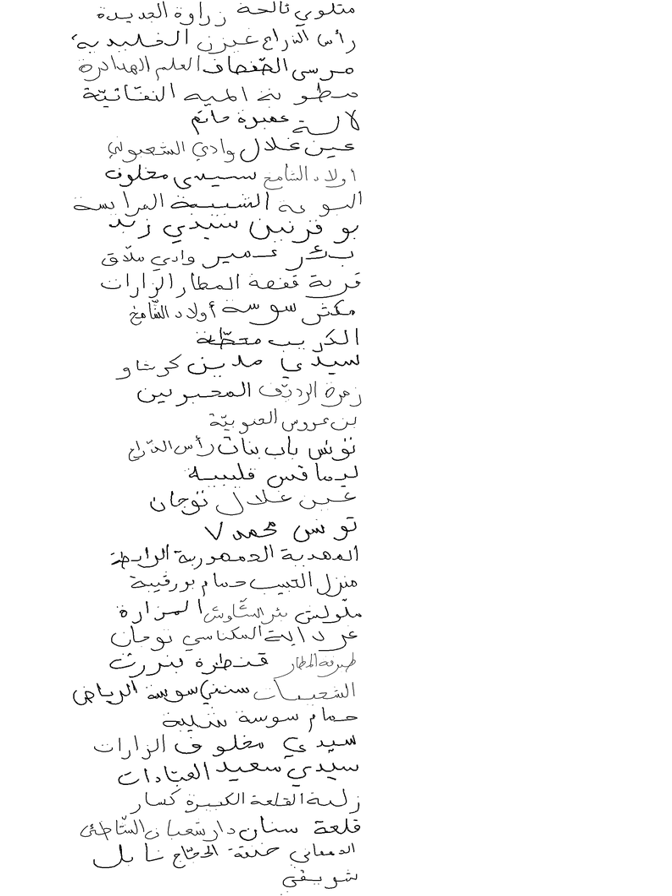 متلوي ثالجة زراوة الجديدة
رأس الذراع غيزن الخليدية
مرسى الصفصاف العلم الهدادرة
مطوية المية النفاتية
لالة عميرة حاتم
عين غلال وادي الشعبوني
أولاد الشامخ سيدي مخلوف
الشبيبة المرايسة
بوقرنين سيدي زيد
بئر عمير وادي ملاق
قرية قفصة المطار الزارات
مكثر سوسة أولاد الشامخ
الكريب محطة
سيدي مدين كريشاو
زهرة الرديف المحبرين
بن عروس الجنوبية
تونس باب بنات رأس الذراع
ليماقس قليبية
عين غلال توجان
تونس محمد V
المهدية الجمهورية الرابطة
منزل الحبيب حمام بورقيبة
ملولش بئر الشاوش المزارة
المكناسي توجان
طبرقة المطار قنطرة بنزرت
الشعيبات سوسة الرياض
حمام سوسة شلبية
سيدي مخلوف الزارات
سيدي سعيد العبادات
القلعة الكبيرة كسار
قلعة سنان دار شعبان الشاطئ
الدهماني خنقة الحجاج نابل
شريفي